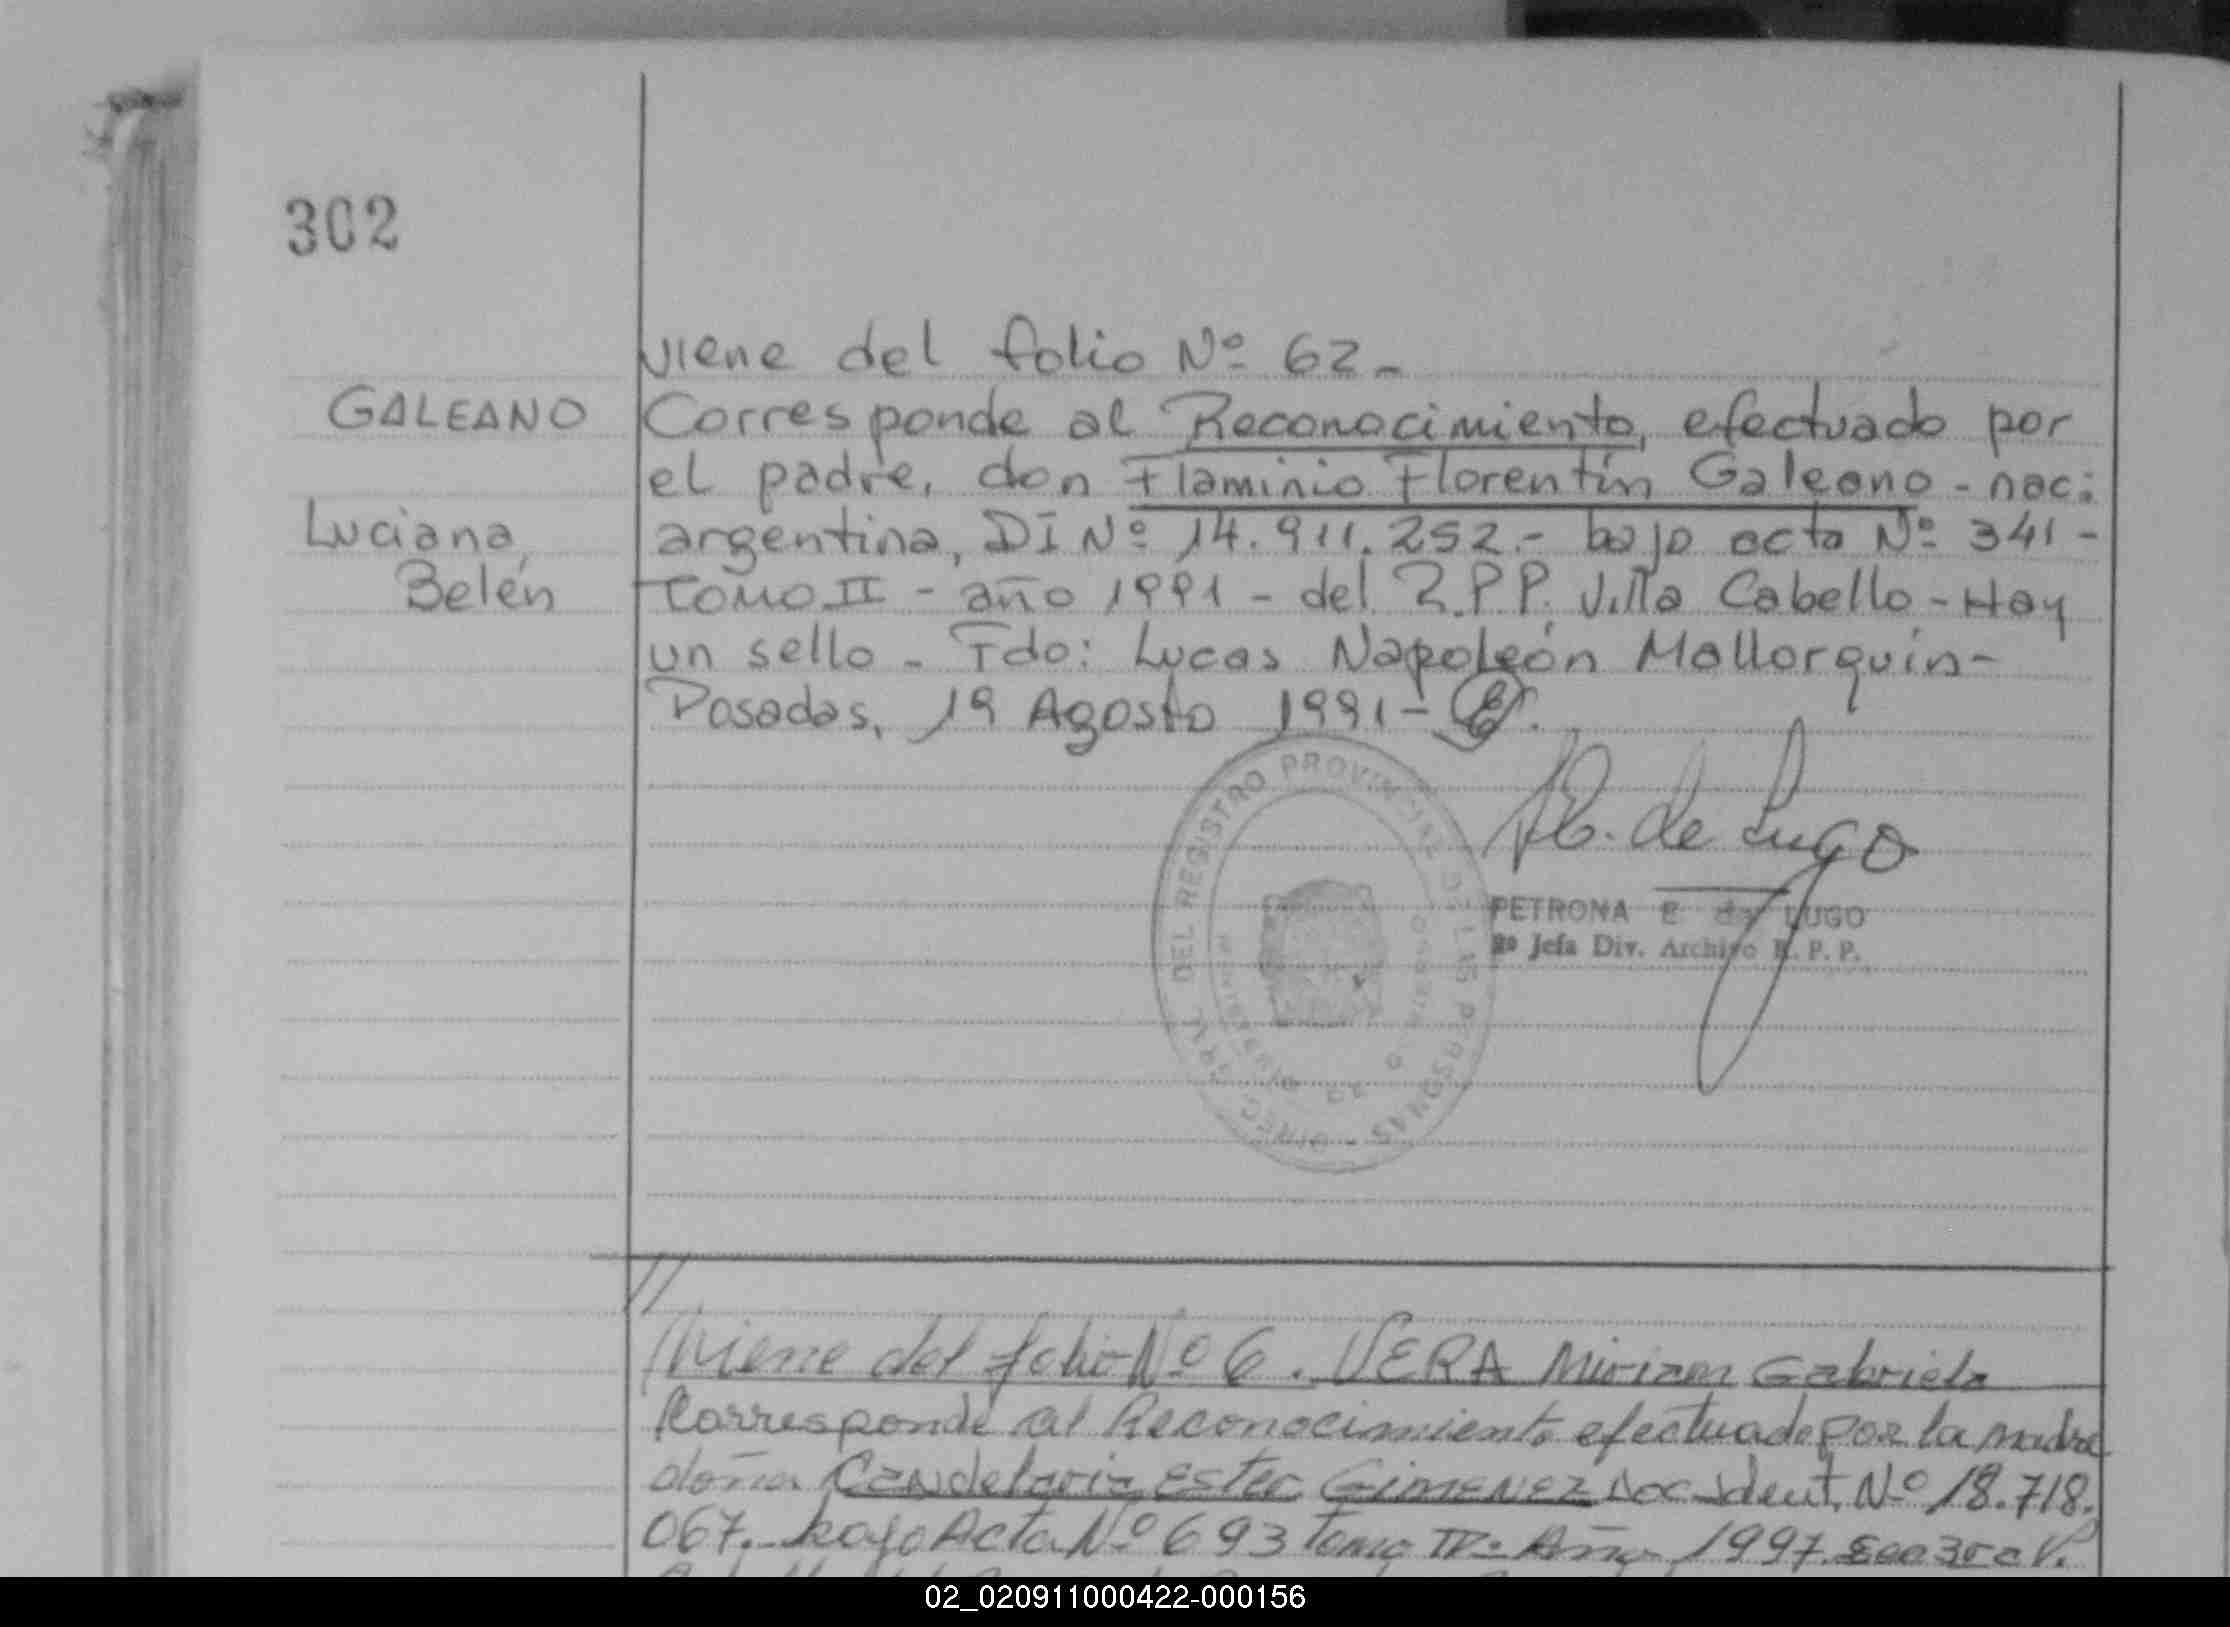 302
viene del folio Nº 62-
GALEANO
Corresponde al Reconocimiento, efectuado por
el padre, don Flaminio Florentín Galeano - nac:
Luciana,
argentina, DI Nº 14.911.252.- bajo acta Nº 341-
Belén
Tomo II - año 1991 - del R.P.P. Villa Cabello - Hay
un sello - Fdo: Lucas Napoleón Mallorquín-
Posadas, 19 Agosto 1991-
DIREC. GRAL. DEL REGISTRO PROVINCIAL DE LAS PERSONAS
E. de Lugo
PETRONA E de LUGO
2º Jefa Div. Archivo R. P. P.
//Viene del folio Nº 6. VERA Miriam Gabriela
Corresponde al Reconocimiento efectuado por la madre
doña Candelaria Ester GIMENEZ Doc. Ident. Nº 18.718.
067.- bajo Acta Nº 693 Tomo IVº Año 1997. Secc 3ra V.
02_020911000422-000156